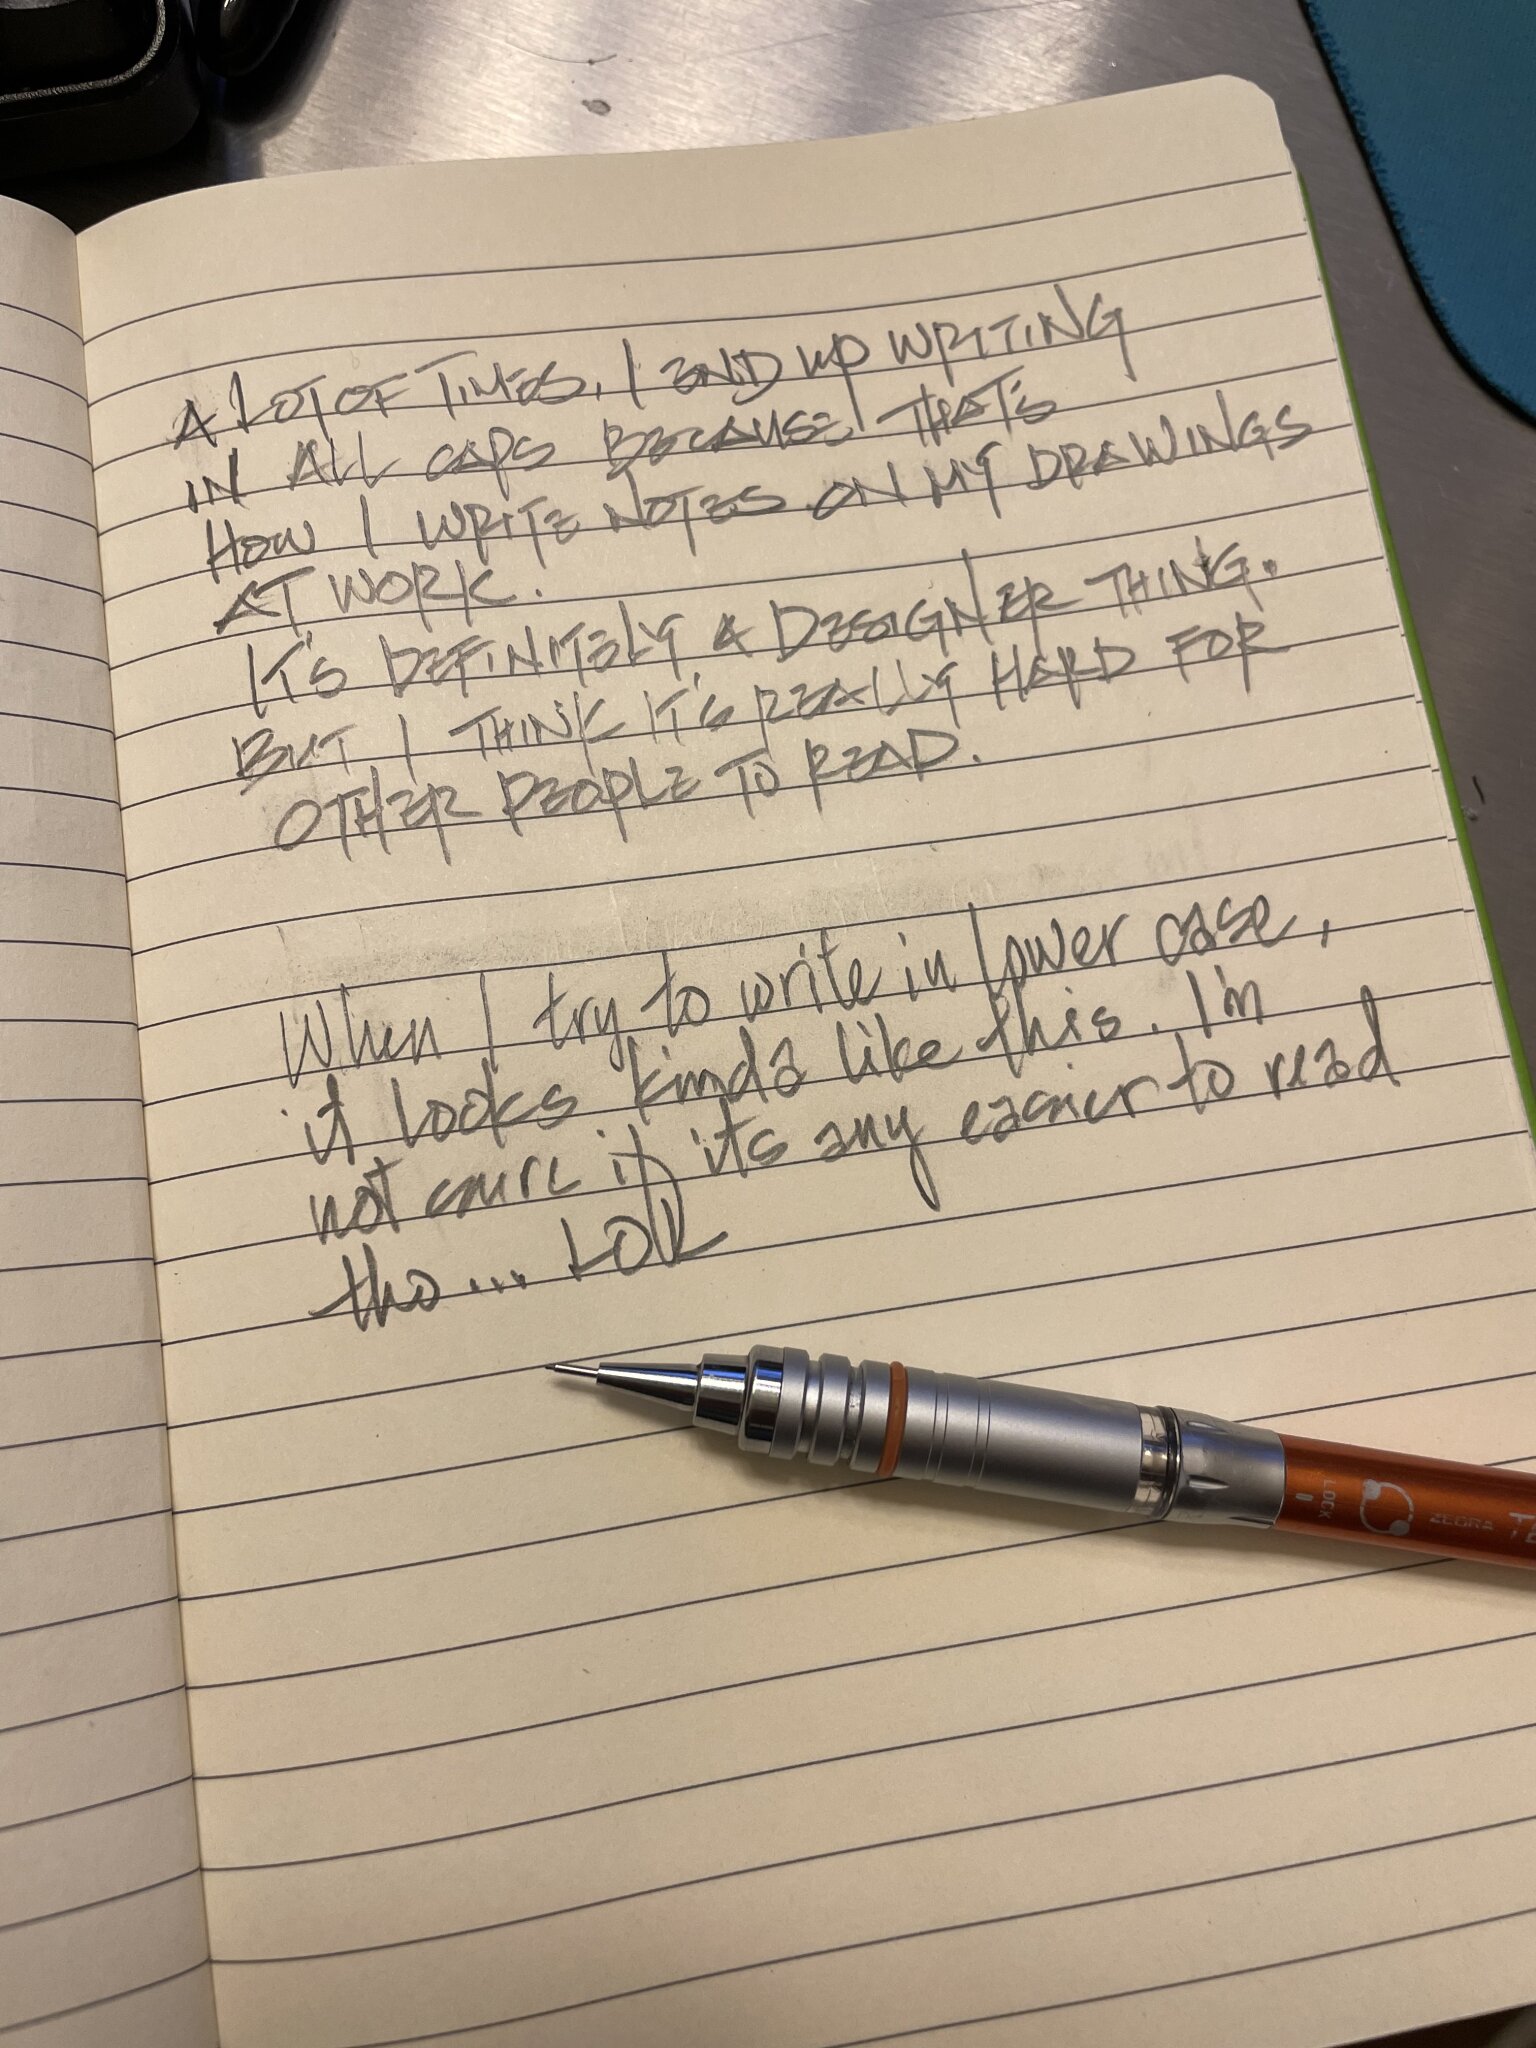 A LOT OF TIMES, I END UP WRITING
IN ALL CAPS BECAUSE THAT'S
HOW I WRITE NOTES ON MY DRAWINGS
AT WORK.
IT'S DEFINITELY A DESIGNER THING.
BUT I THINK IT'S REALLY HARD FOR
OTHER PEOPLE TO READ.
When I try to write in lower case,
it looks kinda like this. I'm
not sure if its any easier to read
tho... LOL
LOCK
ZEBRA